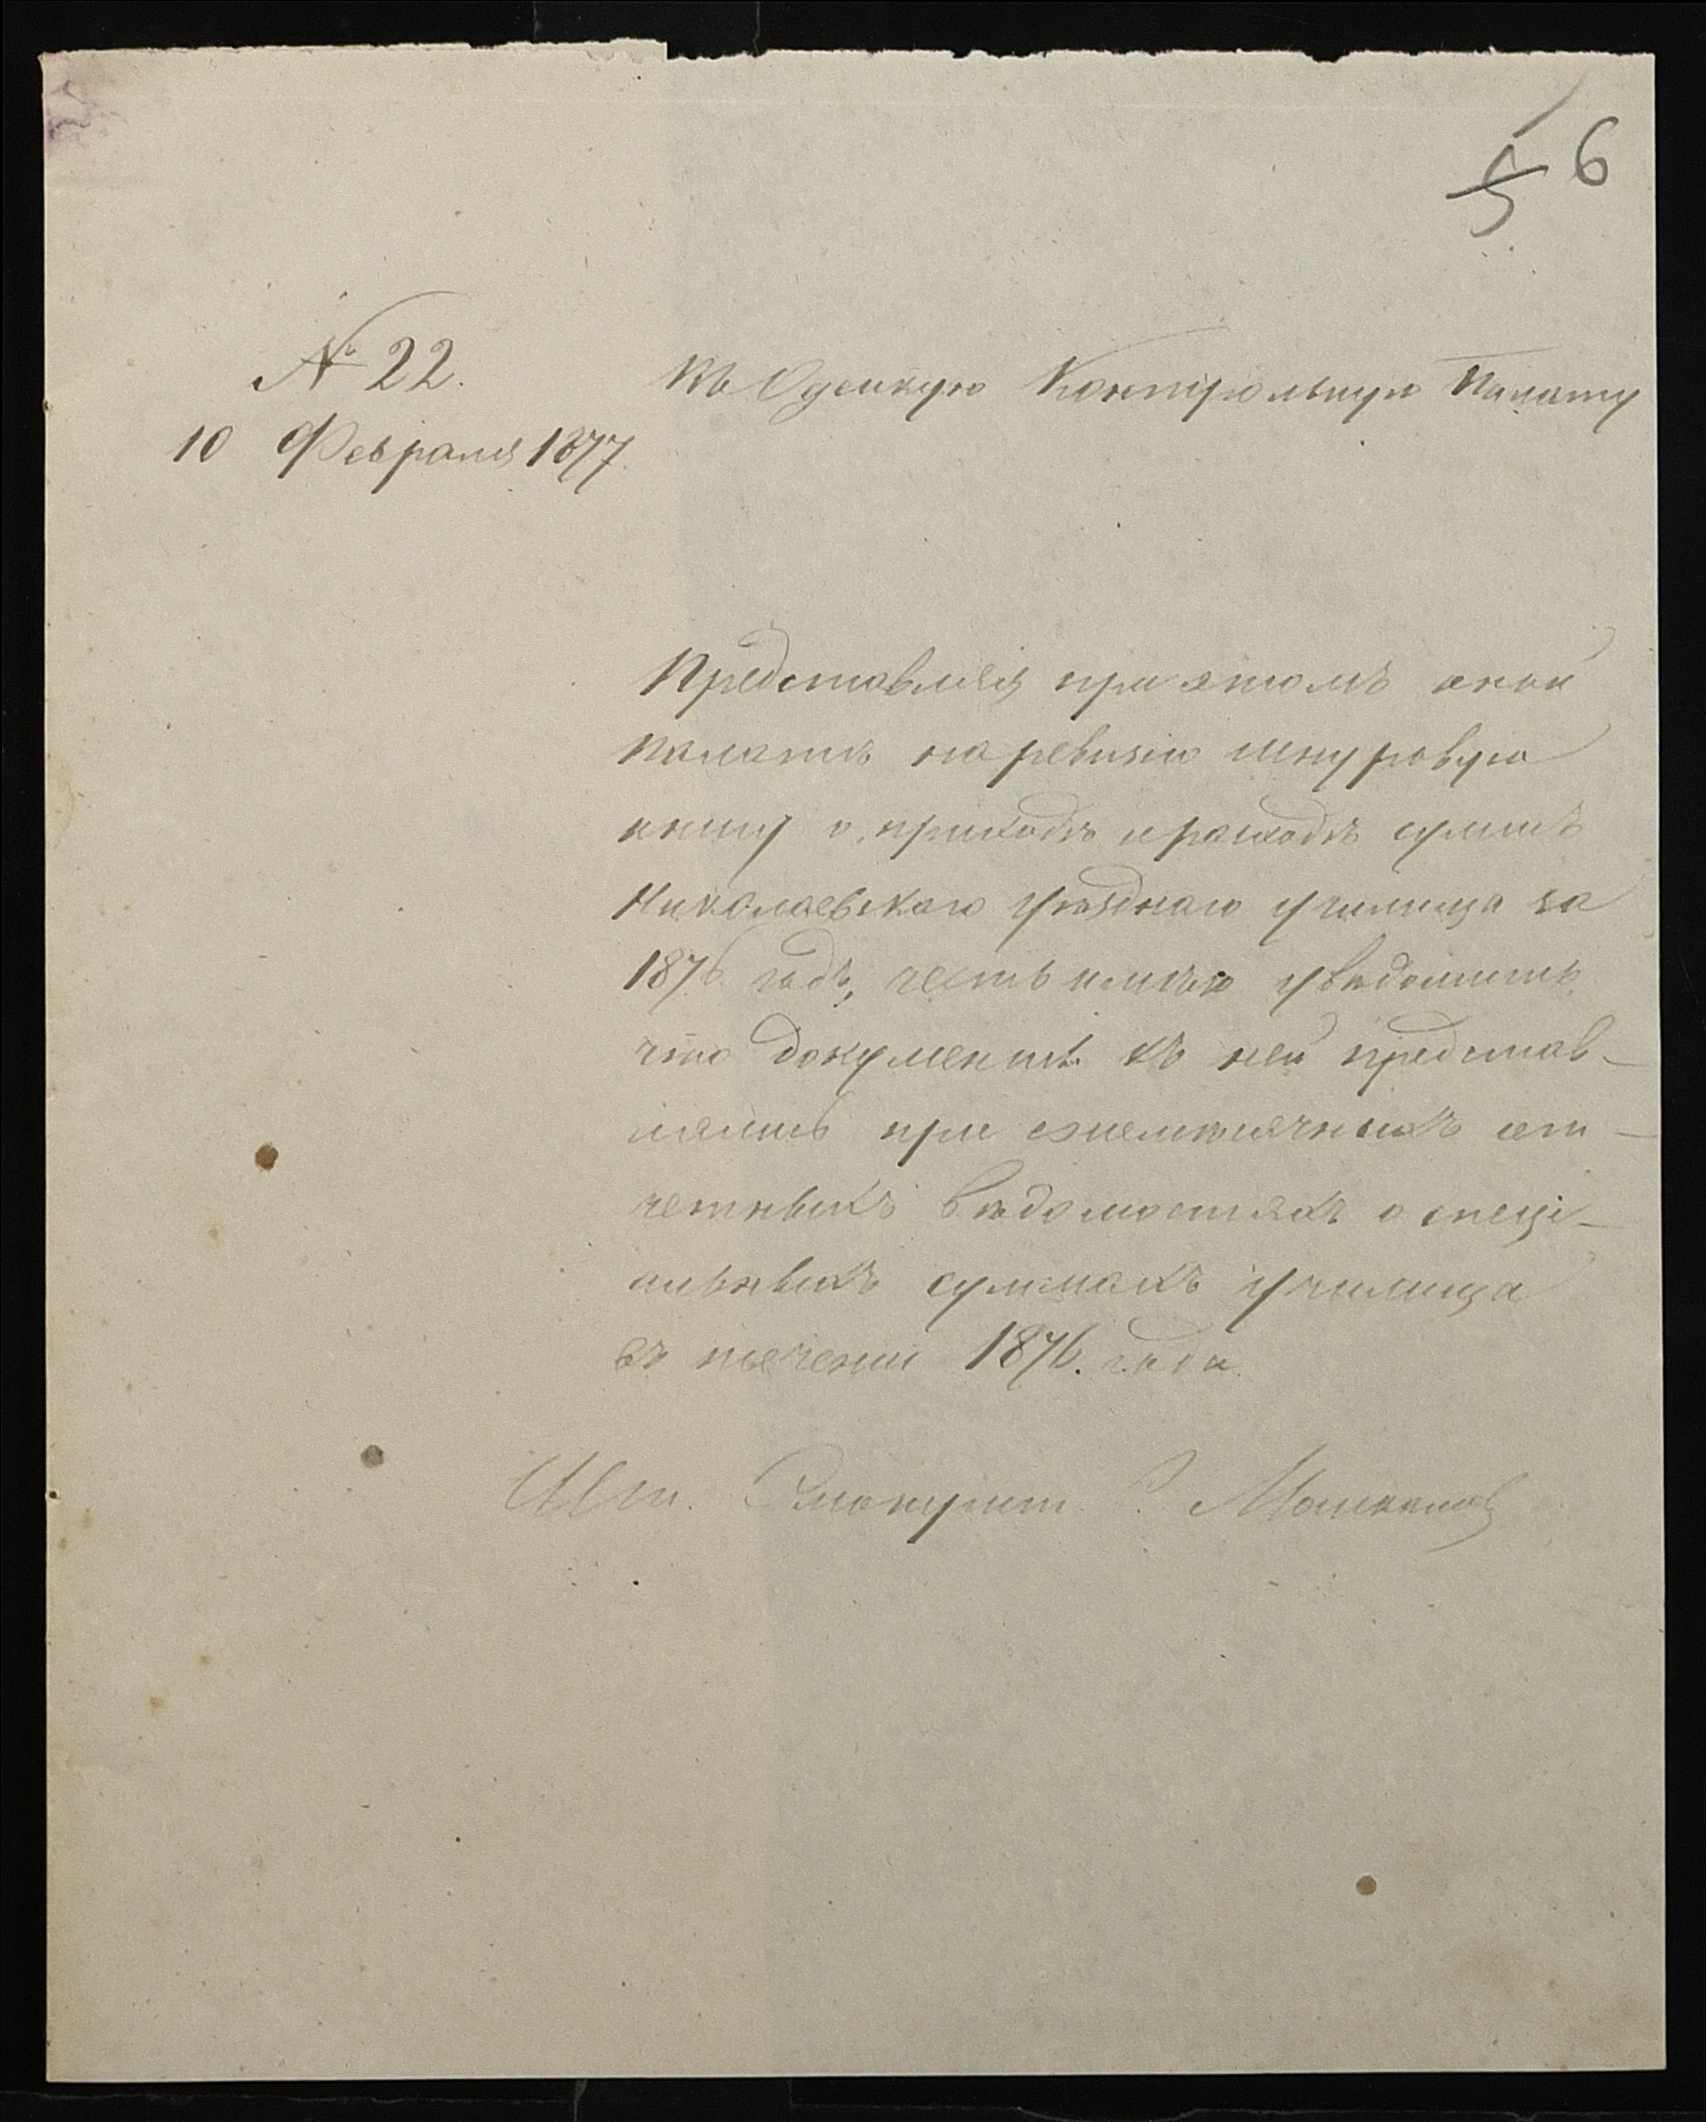 5 6
№ 22.
10 Февраля 1877
Въ Одесскую Контрольную Палату
Представляя при этомъ оной
Палатѣ на ревизію шнуровую
книгу о приходѣ и расходѣ суммъ
Николаевскаго уѣзднаго училища за
1876 годъ, честь имѣю увѣдомить
что документы къ ней представ-
лялись при ежемѣсячныхъ от-
четныхъ вѣдомостяхъ о спеці-
альныхъ суммахъ училища
въ теченіи 1876. года.